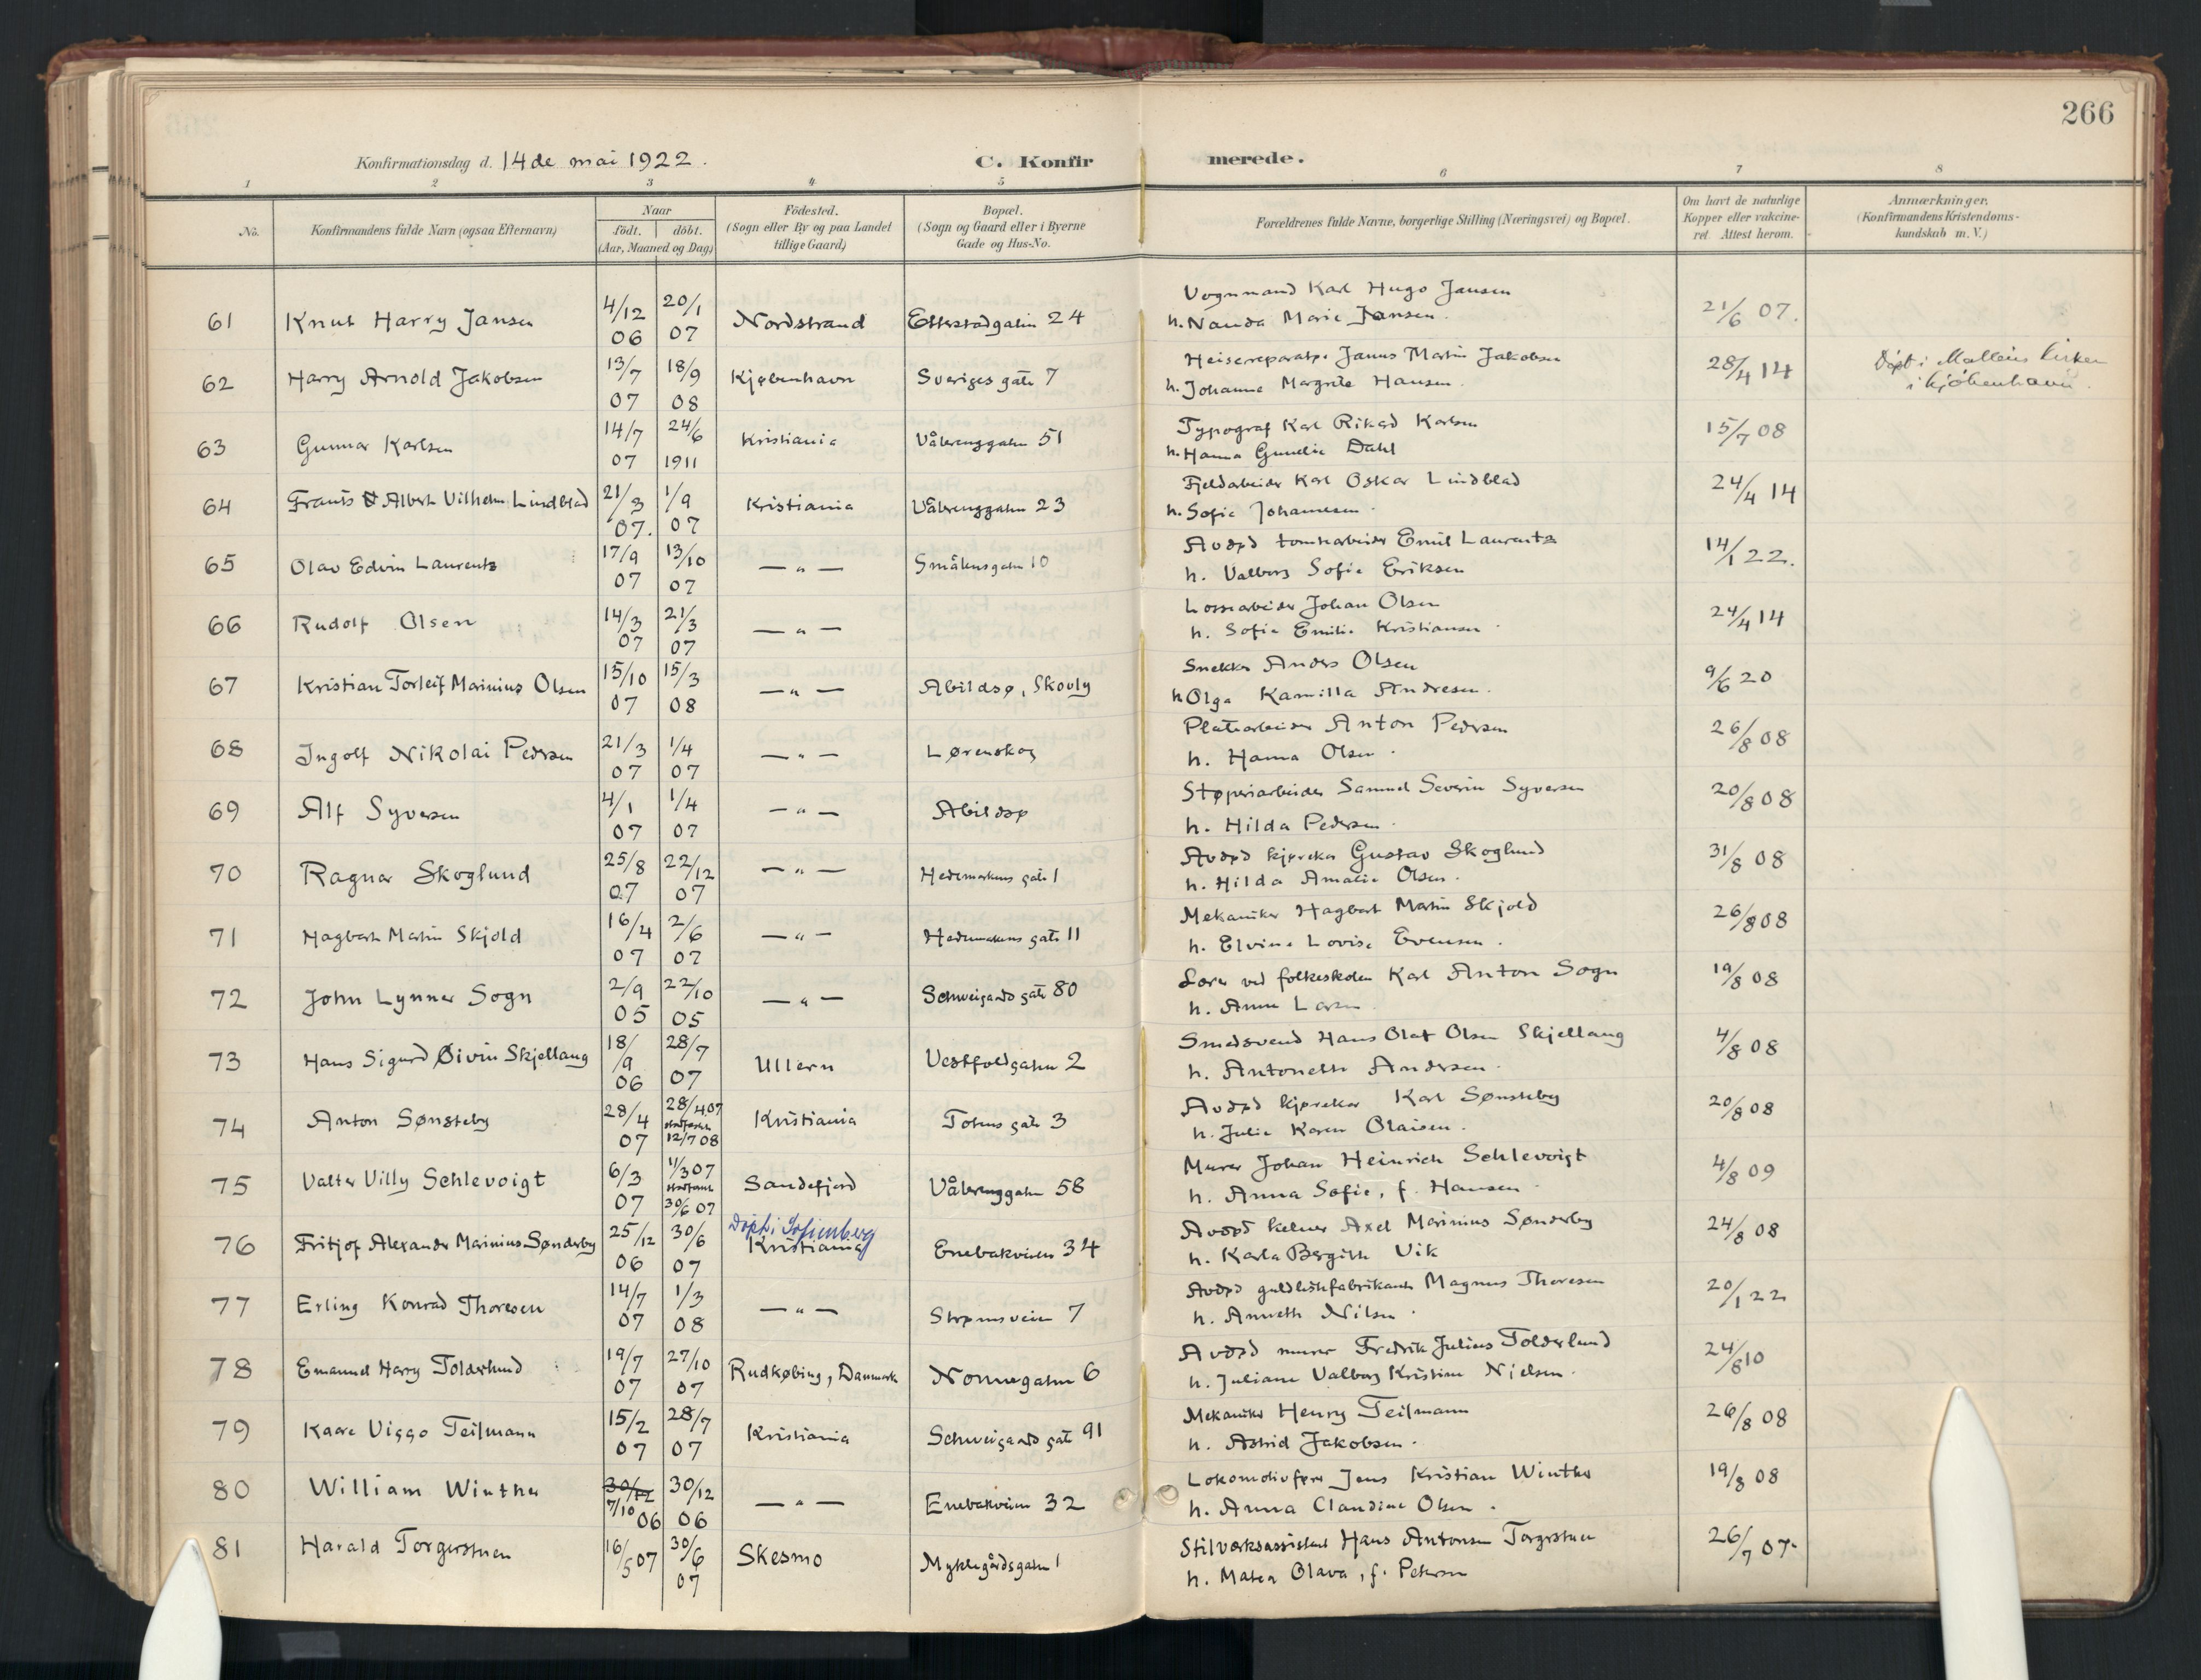 266
Konfirmationsdag d. 14de mai 1922.
C. Konfirmerede.
1 2 3 4 5 6 7 8
No.
Konfirmandens fulde Navn (ogsaa Efternavn)
Naar
födt. döbt.
(Aar, Maaned og Dag)
Födested.
(Sogn eller By og paa Landet
tillige Gaard)
Bopæl.
(Sogn og Gaard eller i Byerne
Gade og Hus-No.
Forældrenes fulde Navne, borgerlige Stilling (Næringsvei) og Bopæl.
Om havt de naturlige
Kopper eller vakcine-
ret. Attest herom.
Anmærkninger.
(Konfirmandens Kristendoms-
kundskab m.V.)
61 Knut Harry Jansen 4/12 06 20/1 07 Nordstrand Etterstadgaten 24 Vognmand Karl Hugo Jansen
h. Nanda Marie Jansen. 21/6 07.
62 Harry Arnold Jakobsen 13/7 07 18/9 08 Kjøbenhavn Sveriges gate 7 Heisereparatør Janus Martin Jakobsen
h. Johanne Margrete Hansen. 28/4 14 Døpt i Matteus kirken
i Kjøbenhavn.
63 Gunnar Karlsen 14/7 07 24/6 1911 Kristiania Vålerenggaten 51 Typograf Karl Rikard Karlsen
h. Hanna Gunelie Dahl 15/7 08
64 Frants Albert Vilhelm Lindblad 21/3 07. 1/9 07 Kristiania Vålerenggaten 23 Fjeldarbeider Karl Oskar Lindblad
h. Sofie Johannesen. 24/4 14
65 Olav Edvin Laurentz 17/9 07 13/10 07 — " — Smålensgaten 10 Avdød tomtearbeider Emil Laurentz
h. Valborg Sofie Eriksen 14/1 22.
66 Rudolf Olsen 14/3 07 21/3 07 — " — Lossearbeider Johan Olsen
h. Sofie Emilie Kristiansen. 24/4 14
67 Kristian Torleif Marinius Olsen 15/10 07 15/3 08 — " — Abildsø, Skovly Snekker Anders Olsen
h. Olga Kamilla Andresen. 9/6 20
68 Ingolf Nikolai Pedersen 21/3 07 1/4 07 — " — Lørenskog Platearbeider Anton Pedersen
h. Hanna Olsen. 26/8 08
69 Alf Syversen 4/1 07 1/4 07 — " — Abildsø Støperiarbeider Samuel Severin Syversen
h. Hilda Pedersen. 20/8 08
70 Ragnar Skoglund 25/8 07 22/12 07 — " — Hedemarkens gate 1 Avdød kjørekar Gustav Skoglund
h. Hilda Amalie Olsen. 31/8 08
71 Hagbart Martin Skjold 16/4 07 2/6 07 — " — Hedemarkens gate 11 Mekaniker Hagbart Martin Skjold
h. Elvine Lovise Evensen. 26/8 08
72 John Lynner Sogn 2/9 05 22/10 05 — " — Schweigaards gate 80 Lærer ved folkeskolen Karl Anton Sogn
h. Anne Larsen 19/8 08
73 Hans Sigurd Øivin Skjellaug 18/9 06 28/7 07 Ullern Vestfoldgaten 2 Smedsvend Hans Olaf Olsen Skjellaug
h. Antonette Andersen. 4/8 08
74 Anton Sønsteby 28/4 07 28/4 07 stadfestet 12/7 08 Kristiania Totens gate 3 Avdød kjørekar Karl Sønsteby
h. Julie Karen Olaisen. 20/8 08
75 Valter Villy Schlevoigt 6/3 07 11/3 07 stadfestet 30/6 07 Sandefjord Vålerenggaten 58 Murer Johan Heinrich Schlevoigt
h. Anna Sofie, f. Hansen 4/8 09
76 Fritjof Alexander Marinius Sønderby 25/12 06 30/6 07 Døpt i Sofienberg
Kristiania Enebakveien 34 Avdød kelner Axel Marinius Sønderby
h. Karla Bergitte Vik 24/8 08
77 Erling Konrad Thoresen 14/7 07 1/3 08 — " — Strømsveien 7 Avdød guldlistfabrikant Magnus Thoresen
h. Annette Nilsen. 20/1 22
78 Emanuel Harry Tolderlund 19/7 07 27/10 07 Rudkøbing, Danmark Nonnegaten 6 Avdød murer Fredrik Julius Tolderlund
h. Juliane Valborg Kristine Nielsen. 24/8 10
79 Kaare Viggo Teilmann 15/2 07 28/7 07 Kristiania Schweigaards gate 91 Mekaniker Henry Teilmann
h. Astrid Jakobsen. 26/8 08
80 William Winther 30/12 7/10 06 30/12 06 — " — Enebakveien 32 Lokomotivfører Jens Kristian Winther
h. Anna Claudine Olsen. 19/8 08
81 Harald Torgerstuen 16/5 07 30/6 07 Skesmo Myklegårdsgaten 1 Stilverksassistent Hans Antonsen Torgerstuen
h. Matea Olava, f. Petersen 26/7 07.